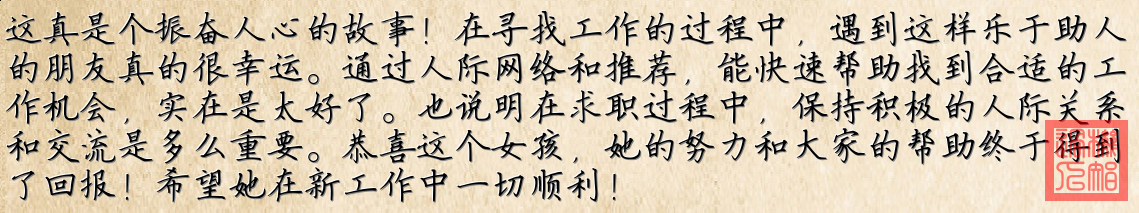 这真是个振奋人心的故事！在寻找工作的过程中，遇到这样乐于助人
的朋友真的很幸运。通过人际网络和推荐，能快速帮助找到合适的工
作机会，实在是太好了。也说明在求职过程中，保持积极的人际关系
和交流是多么重要。恭喜这个女孩，她的努力和大家的帮助终于得到
了回报！希望她在新工作中一切顺利！